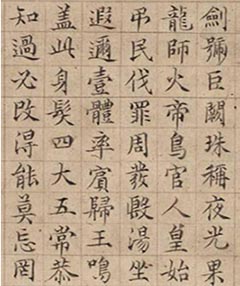 劍號巨闕珠稱夜光果
龍師火帝鳥官人皇始
弔民伐罪周發殷湯坐
遐邇壹體率賓歸王鳴
蓋此身髮四大五常恭
知過必改得能莫忘罔